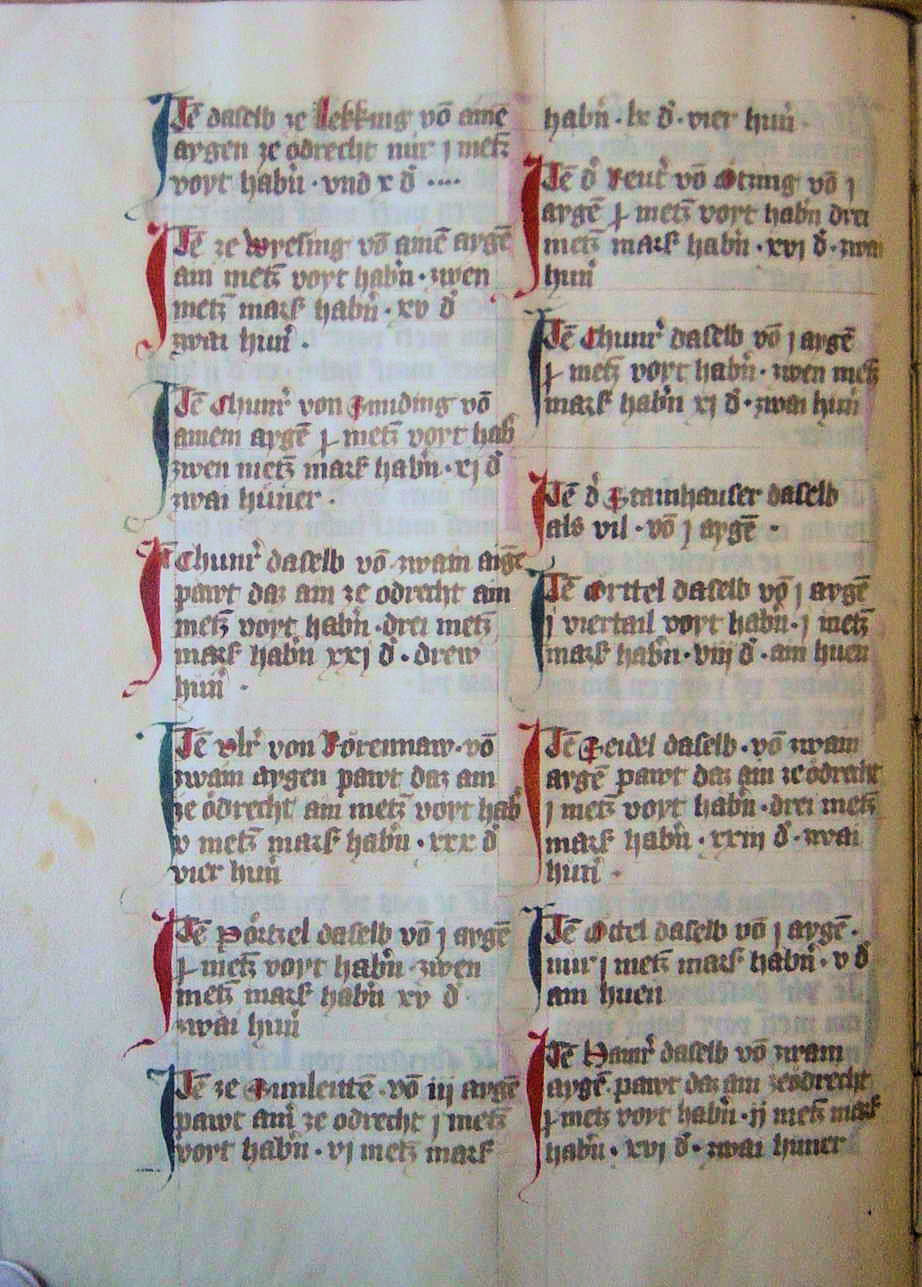 Itē daselb ze Lekking vō ame
aygen ze ödrecht nur j metz̄
voyt habn̄ · vnd x d̄ ····
Itē ze Wysing vō amē aygē
am metz̄ voyt habn̄ · zwen
metz̄ mark habn̄ · xv d̄
zwai hun̄ ·
Itē Chunr̄ von vō
amem aygē metz̄ voyt hab
zwen metz̄ mark habn̄ · xj d̄
zwai hůner ·
Itē Chunr̄ daselb vō zwain aigē
pawt daz am ze odrecht am
metz̄ voyt habn̄ · drei metz̄
mark habn̄ xxj d̄ · drew
hun̄ ·
Itē Vlr̄ von vō
zwain aygen pawt daz am
ze ödrecht am metz̄ voyt hab
v metz̄ mark habn̄ · xxx d̄
vier hun̄
Itē Pörtzel daselb vō j aygē
metz̄ voyt habn̄ · zwen
metz̄ mark habn̄ xv d̄
zwai hun̄
Itē ze vō iij aygē
pawt am̄ ze odrecht j metz̄
voyt habn̄ · vj metz̄ mark
habn̄ · lx d̄ · vier hun̄ ·
Itē d̄ vō j
aygē metz̄ voyt habn̄ drei
metz̄ mark habn̄ · xvj d̄ · zwai
hun̄
Itē Chunr̄ daselb vō j aygē
metz̄ voyt habn̄ · zwen metz̄
mark habn̄ xj d̄ · zwai hun̄
Itē d̄ Stainhauser daselb
als vil · vō j aygē ·
Itē Örttel daselb vō j aygē
j viertail voyt habn̄ · j metz̄
mark habn̄ · viij d̄ · am huen
Itē Seidel daselb · vō zwain
aygē pawt daz am ze ödrecht
j metz̄ voyt habn̄ · drei metz̄
mark habn̄ · xxiij d̄ · zwai
hun̄ ·
Itē Ottel daselb vō j aygē ·
nur j metz̄ mark habn̄ · v d̄
am huen
Itē Hainr̄ daselb vō zwain
aygē pawt daz am ze ödrecht
metz voyt habn̄ · ij metz̄ mark
habn̄ · xvj d̄ · zwai huner